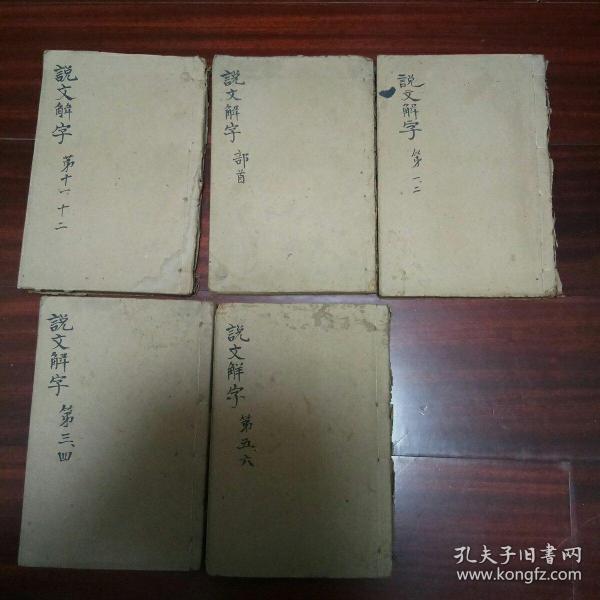 說文解字
第十一十二
說文解字
部首
說文解字
第一、二
說文解字
第三、四
說文解字
第五、六
孔夫子旧書网
www.kongfz.com